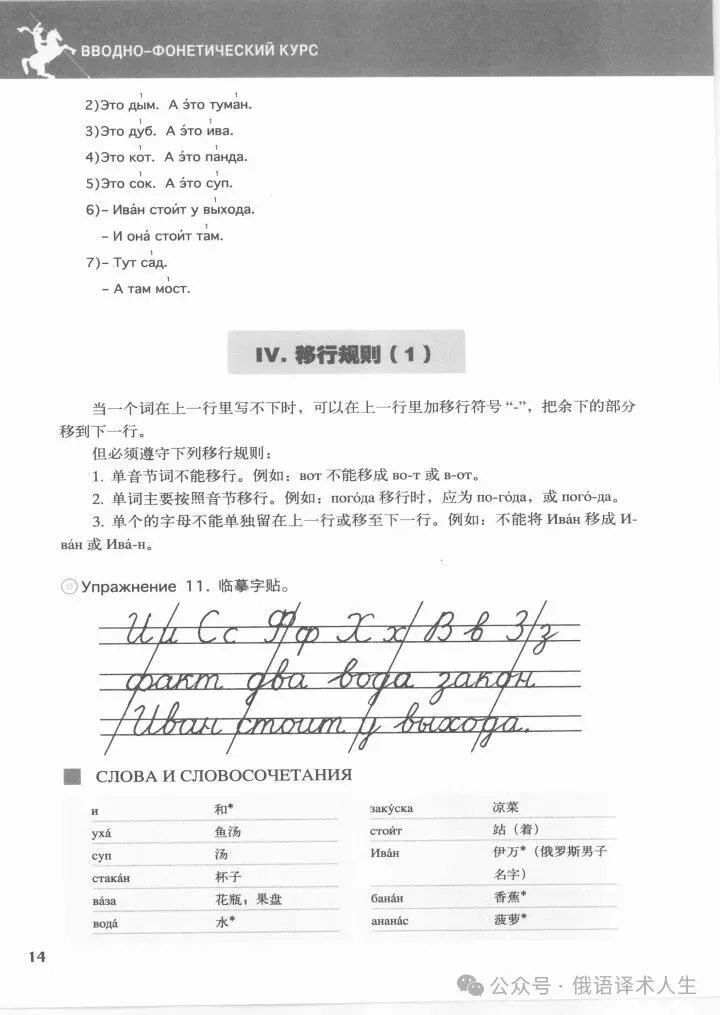 ВВОДНО–ФОНЕТИЧЕСКИЙ КУРС
2)Это дым. А э́то тума́н.
3)Это дуб. А э́то и́ва.
4)Это кот. А э́то па́нда.
5)Это сок. А э́то суп.
6)– Ива́н стои́т у вы́хода.
– И она́ стои́т там.
7)– Тут сад.
– А там мост.
IV. 移行规则(1)
当一个词在上一行里写不下时,可以在上一行里加移行符号“-”,把余下的部分
移到下一行。
但必须遵守下列移行规则:
1. 单音节词不能移行。例如:вот 不能移成 во-т 或 в-от。
2. 单词主要按照音节移行。例如:пого́да 移行时,应为 по-го́да,或 пого́-да。
3. 单个的字母不能单独留在上一行或移至下一行。例如:不能将 Ива́н 移成 И-
ва́н 或 Ива́-н。
Упражнение 11. 临摹字贴。
И и С с Ф ф Х х В в З з
факт два вода закон
Иван стоит у выхода.
СЛОВА И СЛОВОСОЧЕТАНИЯ
и 和*
уха́ 鱼汤
суп 汤
стака́н 杯子
ва́за 花瓶;果盘
вода́ 水*
заку́ска 凉菜
стои́т 站(着)
Ива́н 伊万*(俄罗斯男子
名字)
бана́н 香蕉*
анана́с 菠萝*
14
公众号·俄语译术人生